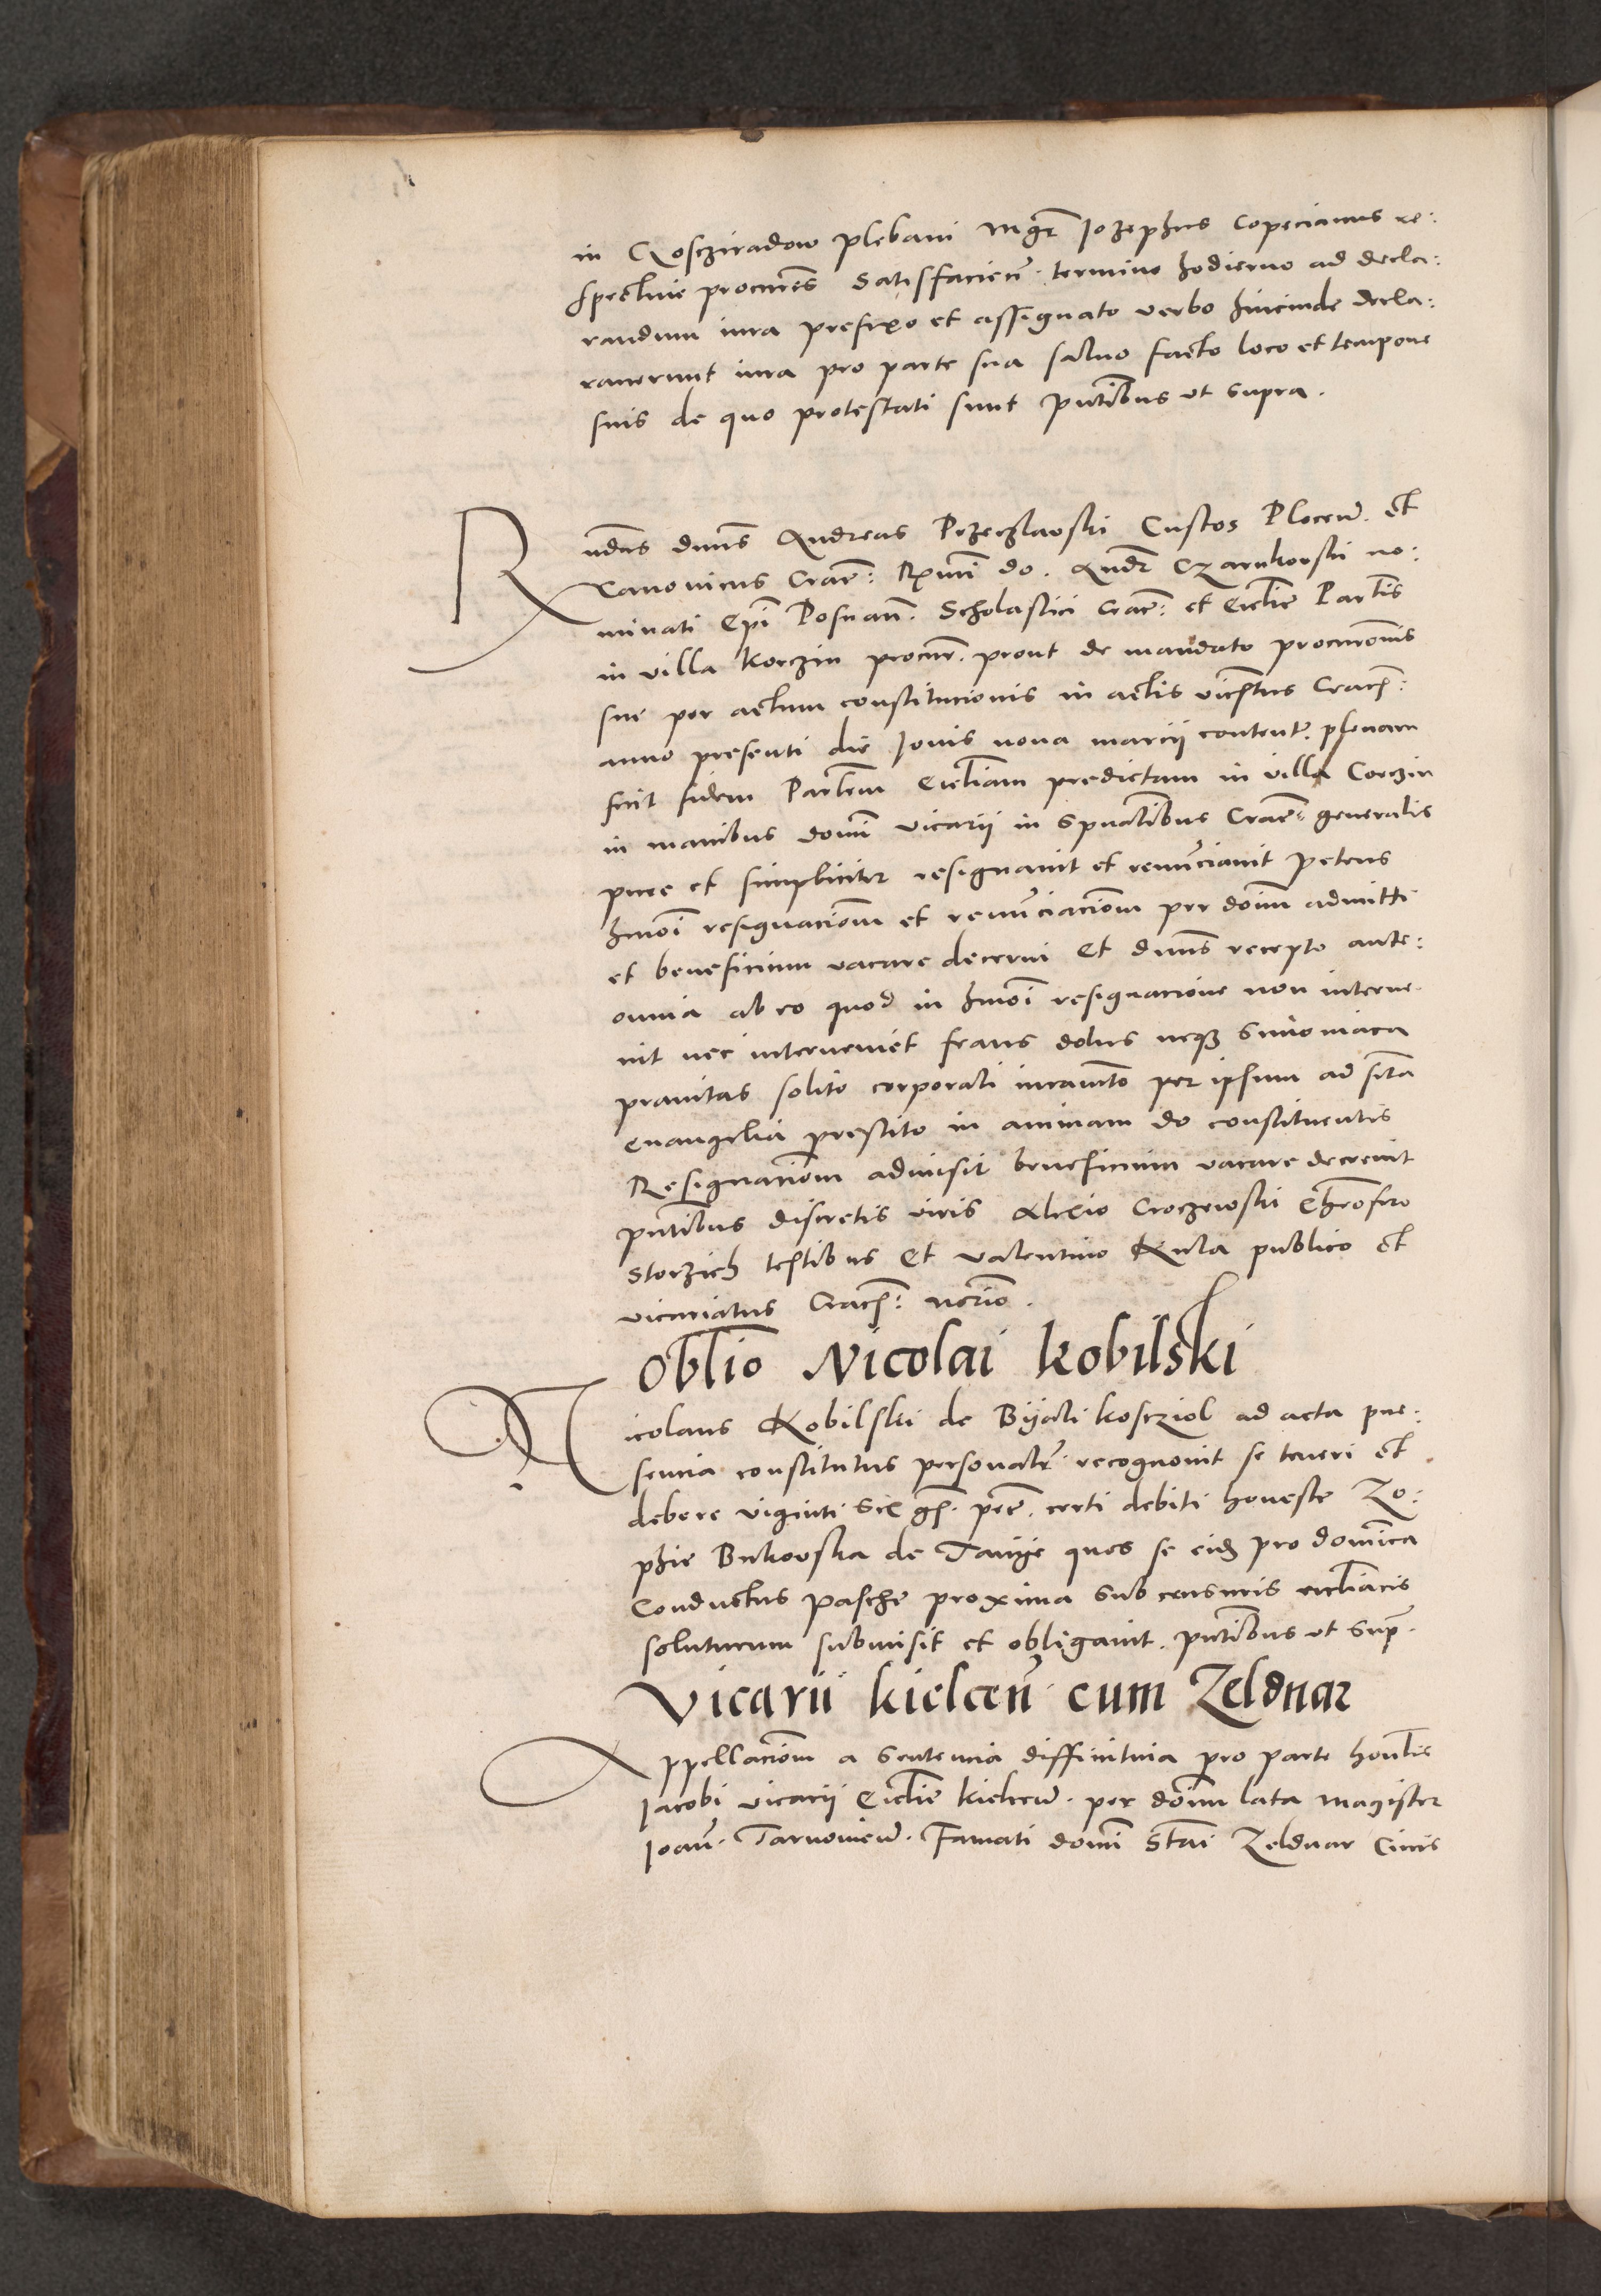 in Roscziradow plebani Mgr̃ Jozephus Copecianus re:
spectiue procurẽs Satisfacieñ. termino hodierno ad decla:
randum iura prefixo et assignato verbo hincinde decla:
rauerunt iura pro parte sua saluo facto loco et tempore
suis de quo protestati sunt pñtibus vt supra.
Rñdus dnũs Andreas Przeczlawski Custos Ploceñ. et
Canonicus Crac̃: Rx̃mi do. Andr̃ Czarnkowski no:
minati Ep̃i Posnañ. Scholastici Crac̃: et Ecc̃lie Part̃is
in villa Korczin procur̃. prout de mandato procur̃onis
sue per actum constitucionis in actis vic̃htus Crac̃h:
anno presenti die Jouis nona marcii content̃. plenam
fuit fidem Part̃em Ecc̃liam predictam in villa Corczin
in manibus domĩ vicarii in sp̃ualibus Crac̃: generalis
pure et simpliciter resignauit et renũciauit petens
hmõi resignaciõm et renũciaciõm per doĩm admitti
et beneficium vacare decerni Et dnũs recepto ante:
omnia ab eo quod in hmõi resignacione non interue
nit nec interueniet fraus dolus neq3 simoniaca
prauitas solito corporali iuramẽto per ipsum ad sc̃ta
euangelia prestito in animam do constituentis
Resignaciõm admisit beneficium vacare decreuit
pñtibus discretis viris Alexio Croczewski Chr̃ofero
Storzich testibus et valentino Kula publico et
vicariatus Crac̃h: noc̃rio.
Obl̃io Nicolai kobilski
Nicolaus Kobilski de Biyali koscziol ad acta pre:
sencia constitutus personal̃r recognouit se teneri et
debere viginti sex gr̃. pec̃. certi debiti honeste Zo:
phie Bukowska de Tanije quos se eid3 pro dominica
Conductus pasche proxima sub censuris eccl̃iacis
soluturum submisit et obligauit. pñtibus vt sup̃.
Vicarii kielceñ cum Zeldnar
Appellaciõm a sentencia diffinitiua pro parte honl̃is
Jacobi vicarii Ecc̃lie kielceñ. per doĩm lata magister
Joañ. Tarnowieñ. Famati domĩ Stãi Zeldnar Ciuis